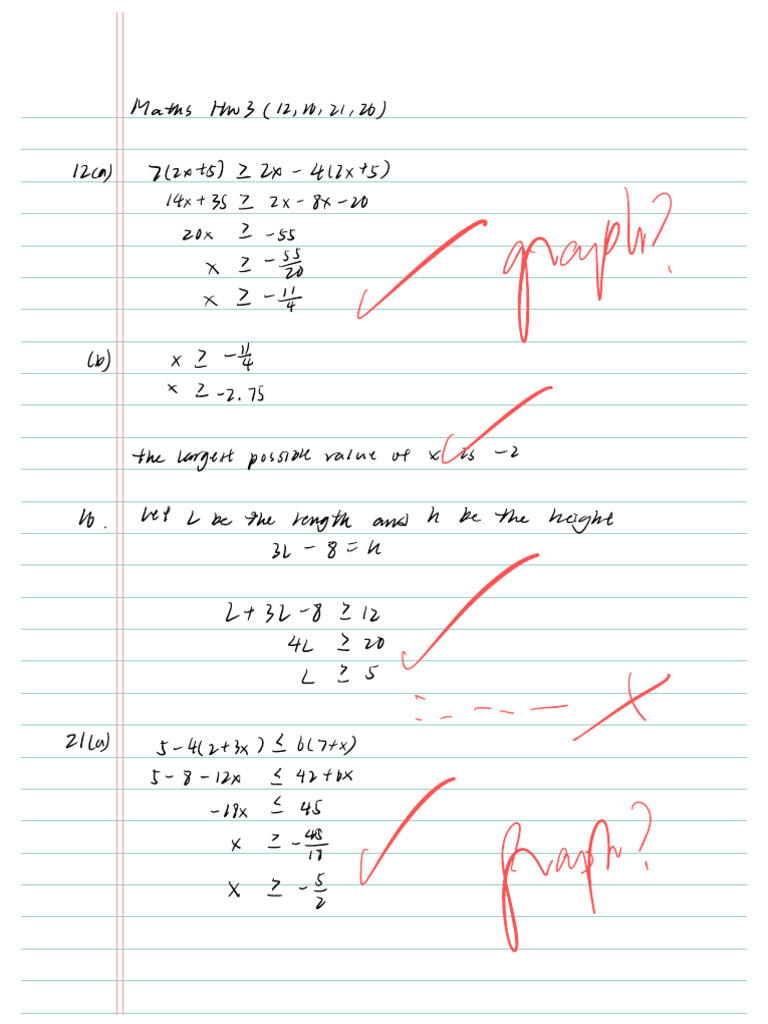 Maths HW3 (12, 10, 21, 26)
12(a) 7(2x+5) ≥ 2x - 4(2x+5)
14x+35 ≥ 2x-8x-20
20x ≥ -55
x ≥ -55/20
x ≥ -11/4
graph?
(b) x ≥ -11/4
x ≥ -2.75
the largest possible value of x is -2
10. Let L be the length and h be the height
3L - 8 = h
L + 3L - 8 ≥ 12
4L ≥ 20
L ≥ 5
21(a) 5-4(2+3x) ≤ 6(7+x)
5-8-12x ≤ 42+6x
-18x ≤ 45
x ≥ -45/18
x ≥ -5/2
graph?